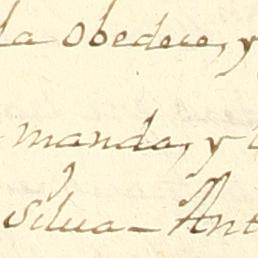 la obedece, y
manda, y
Silua - Ant